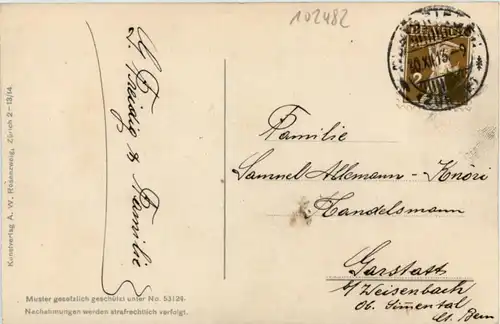 102482
Familie
Samuel Allemann-Knöri
Handelsmann
Garstatt
b/ Weisenbach
Ob. Simmental
Ct. Bern
& Familie
Kunstverlag A. W. Rosenzweig, Zürich 2-13/14.
Muster gesetzlich geschützt unter No. 53124.
Nachahmungen werden strafrechtlich verfolgt.